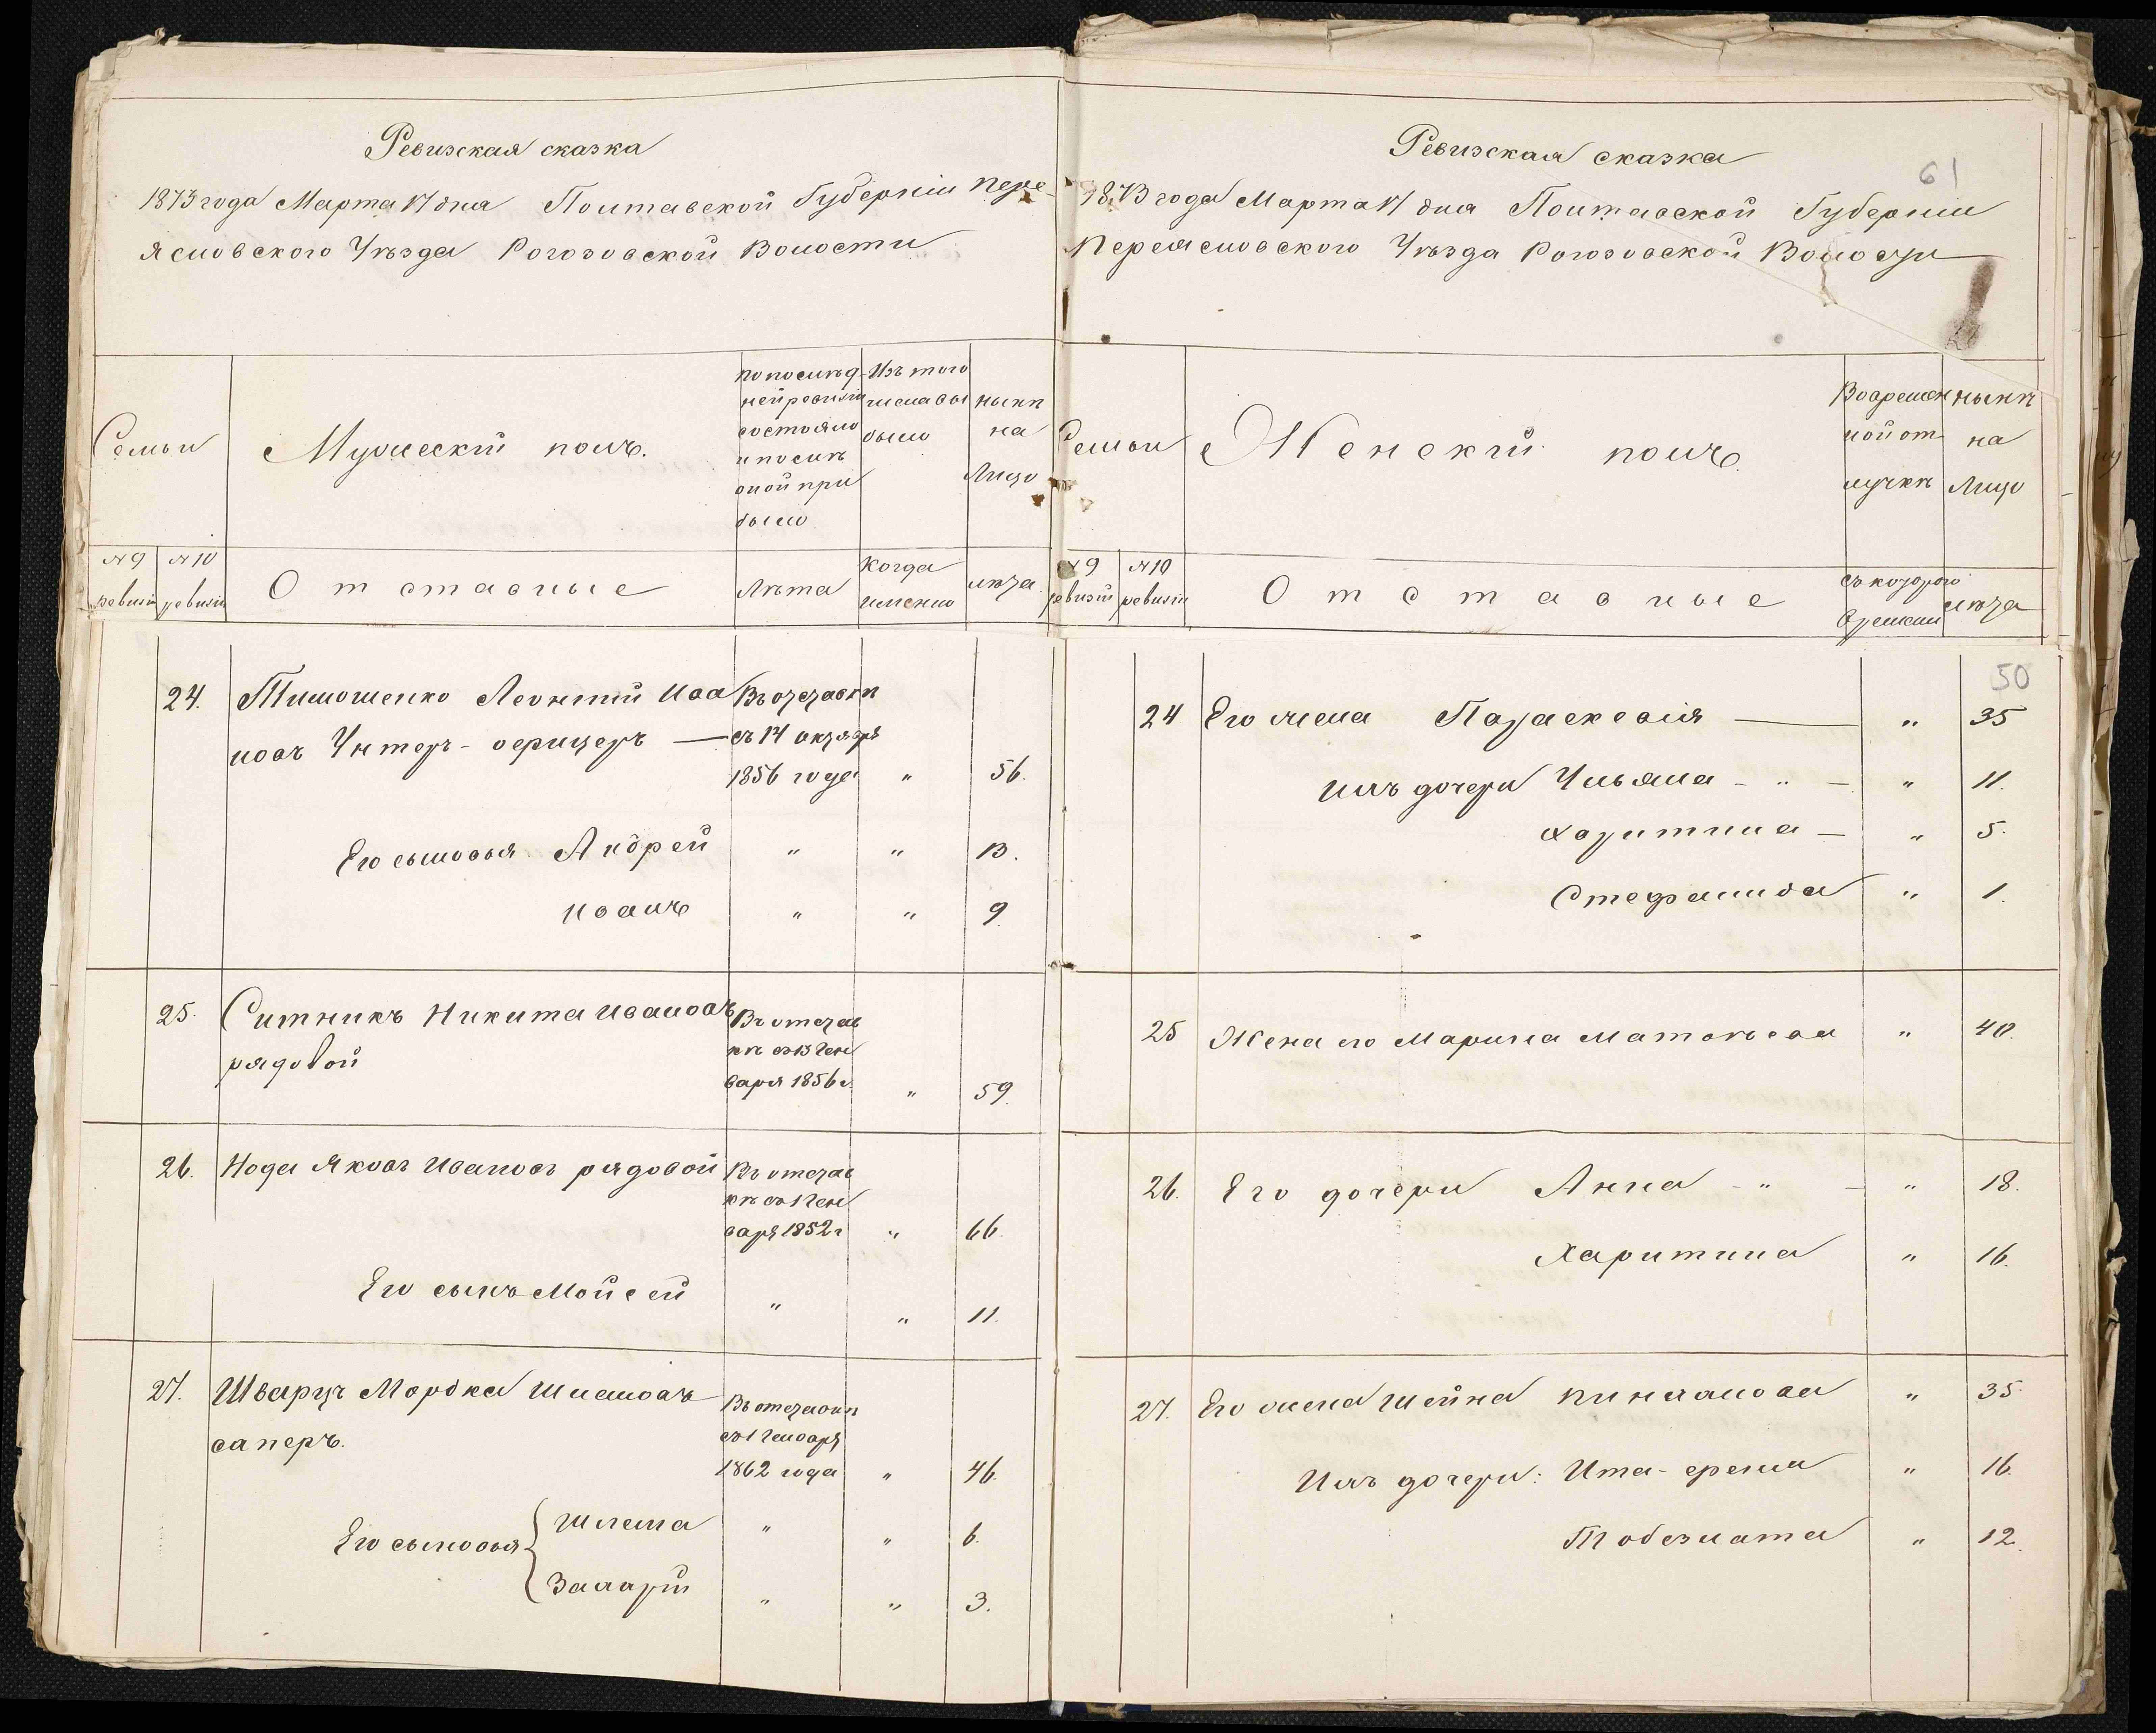 Ревизская сказка
1873 года Марта 17 дня Полтавской Губерніи Пере-
яславского Уѣзда Рогозовской Волости
Семьи
Мужескій полъ.
по послѣд-
ней ревизіи
состояло
и послѣ
оной при
было
Изъ того
числа вы
было
нынѣ
на
Лицо
№ 9
ревизіи
№ 10
ревизіи
Отставные
Лѣта
Когда
именно
лѣта
24. Тимошенко Леонтій Ива
новъ Унтеръ-офицеръ —
Въ отставкѣ
съ 14 октября
1856 года " 56.
Его сыновья Андрей " " 13.
Иванъ " " 9.
25. Ситникъ Никита Ивановъ
рядовой
Въ отстав
кѣ съ 13 Ген
варя 1856 г. " 59.
26. Нога Яковъ Ивановъ рядовой
Въ отстав
кѣ съ 1 Ген
варя 1852 г " 66.
Его сынъ Мойсей " " 11.
27. Шварцъ Мордка
саперъ.
Въ отставкѣ
съ 1 Генваря
1862 года " 46.
Его сыновья Шлема " " 6.
" " 3.
Ревизская сказка
61
1873 года Марта 17 дня Полтавской Губерніи
Переяславского Уѣзда Рогозовской Волости
Семьи
Женскій полъ.
Во времен
ной от
лучкѣ
нынѣ
на
Лицо
№ 9
ревизіи
№ 10
ревизіи
Отставные
съ которого
времени
лѣта
50
24 Его жена Параскевія — " 35
Ихъ дочери Ульяна - " - " 11.
Харитина — " 5.
Стефанида " 1.
25 Жена его Марина Матвѣева " 40.
26. Его дочери Анна - " - " 18.
Харитина " 16.
27. Его жена Шейна " 35.
Ихъ дочери: Ита-фрейма " 16.
" 12.